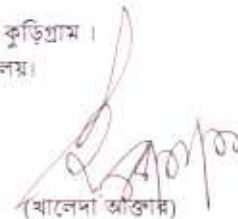 কুড়িগ্রাম।
লয়।
(খালেদা আক্তার)